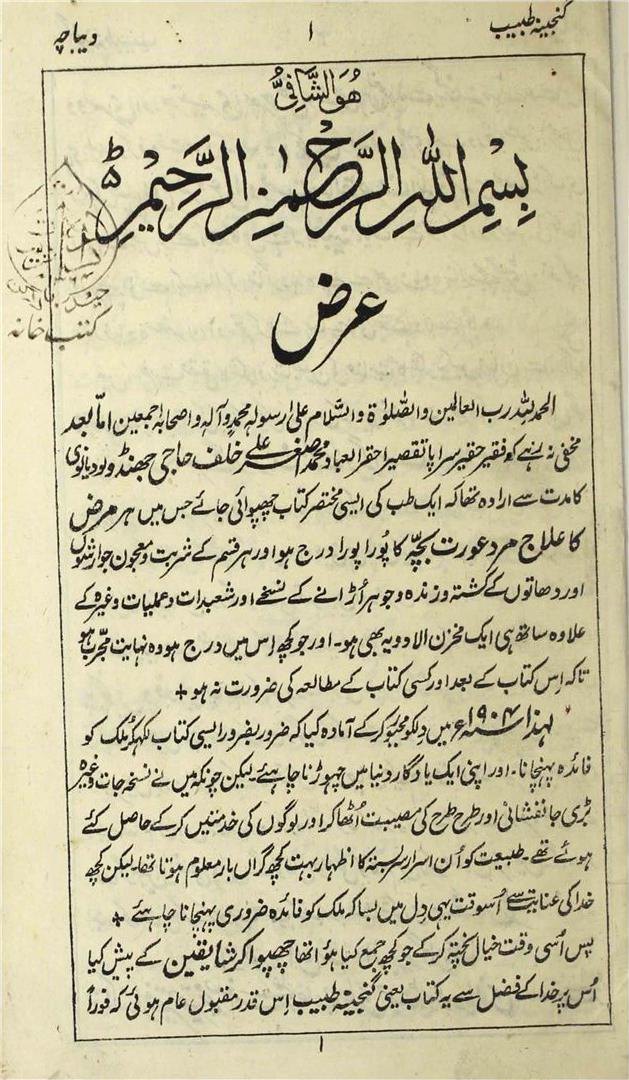 گنجینۂ طبیب ۱ دیباچہ
ھُوَالشَّافِیُ
بِسْمِ اللّٰہِ الرَّحْمٰنِ الرَّحِیْمِ
عرض
الحمد للہ رب العالمین والصّلوٰۃ والسّلام علیٰ رسولہ محمدٍ وآلہ واصحابہٖ اجمعین امّا بعد
مخفی نہ رہے کہ فقیر حقیر سراپا تقصیر احقر العباد محمد اصغر علی خلف حاجی جھنڈو لودیانوی
کا مدت سے ارادہ تھا کہ ایک طب کی ایسی مختصر کتاب چھپوائی جائے جس میں ہر مرض
کا علاج مرد عورت بچّہ کا پُورا پورا درج ہو اور ہر قسم کے شربت و معجون جوارشوں
اور دھاتوں کے کشتہ و زندہ و جوہر اُڑانے کے نسخے اور شعبدات و عملیات وغیرہ کے
علاوہ ساتھ ہی ایک مخزن الادویہ بھی ہو۔ اور جو کچھ اِس میں درج ہو وہ نہایت مجّرب ہو
تاکہ اِس کتاب کے بعد اور کسی کتاب کے مطالعہ کی ضرورت نہ ہو +
لہذا ۱۹۰۴ء میں دِلکو مجبو کر کے آمادہ کیا کہ ضرور بضرور ایسی کتاب لکھکر مُلک کو
فائدہ پہنچانا۔ اور اپنی ایک یادگار دنیا میں چھوڑنا چاہئے۔ لیکن چونکہ میں نے نسخہ جات وغیرہ
بڑی جانفشانی اور طرح طرح کی مصیبت اُٹھا کر اور لوگوں کی خدمتیں کرکے حاصل کئے
ہوئے تھے۔ طبیعت کو اُن اسرار سربستہ کا اظہار بہت کچھ گراں بار معلوم ہوتا تھا۔ لیکن کچھ
خدا کی عنایت سے اُسوقت یہی دِل میں بسا کہ ملک کو فائدہ ضروری پہنچانا چاہئے +
پس اُسی وقت خیال پختہ کرکے جو کچھ جمع کیا ہؤا تھا چھپوا کر شایقین کے پیش کیا
اُس پر خدا کے فضل سے یہ کتاب یعنی گنجینۂ طبیب اِس قدر مقبول عام ہوئی کہ فوراً
۱
کتب خانہ